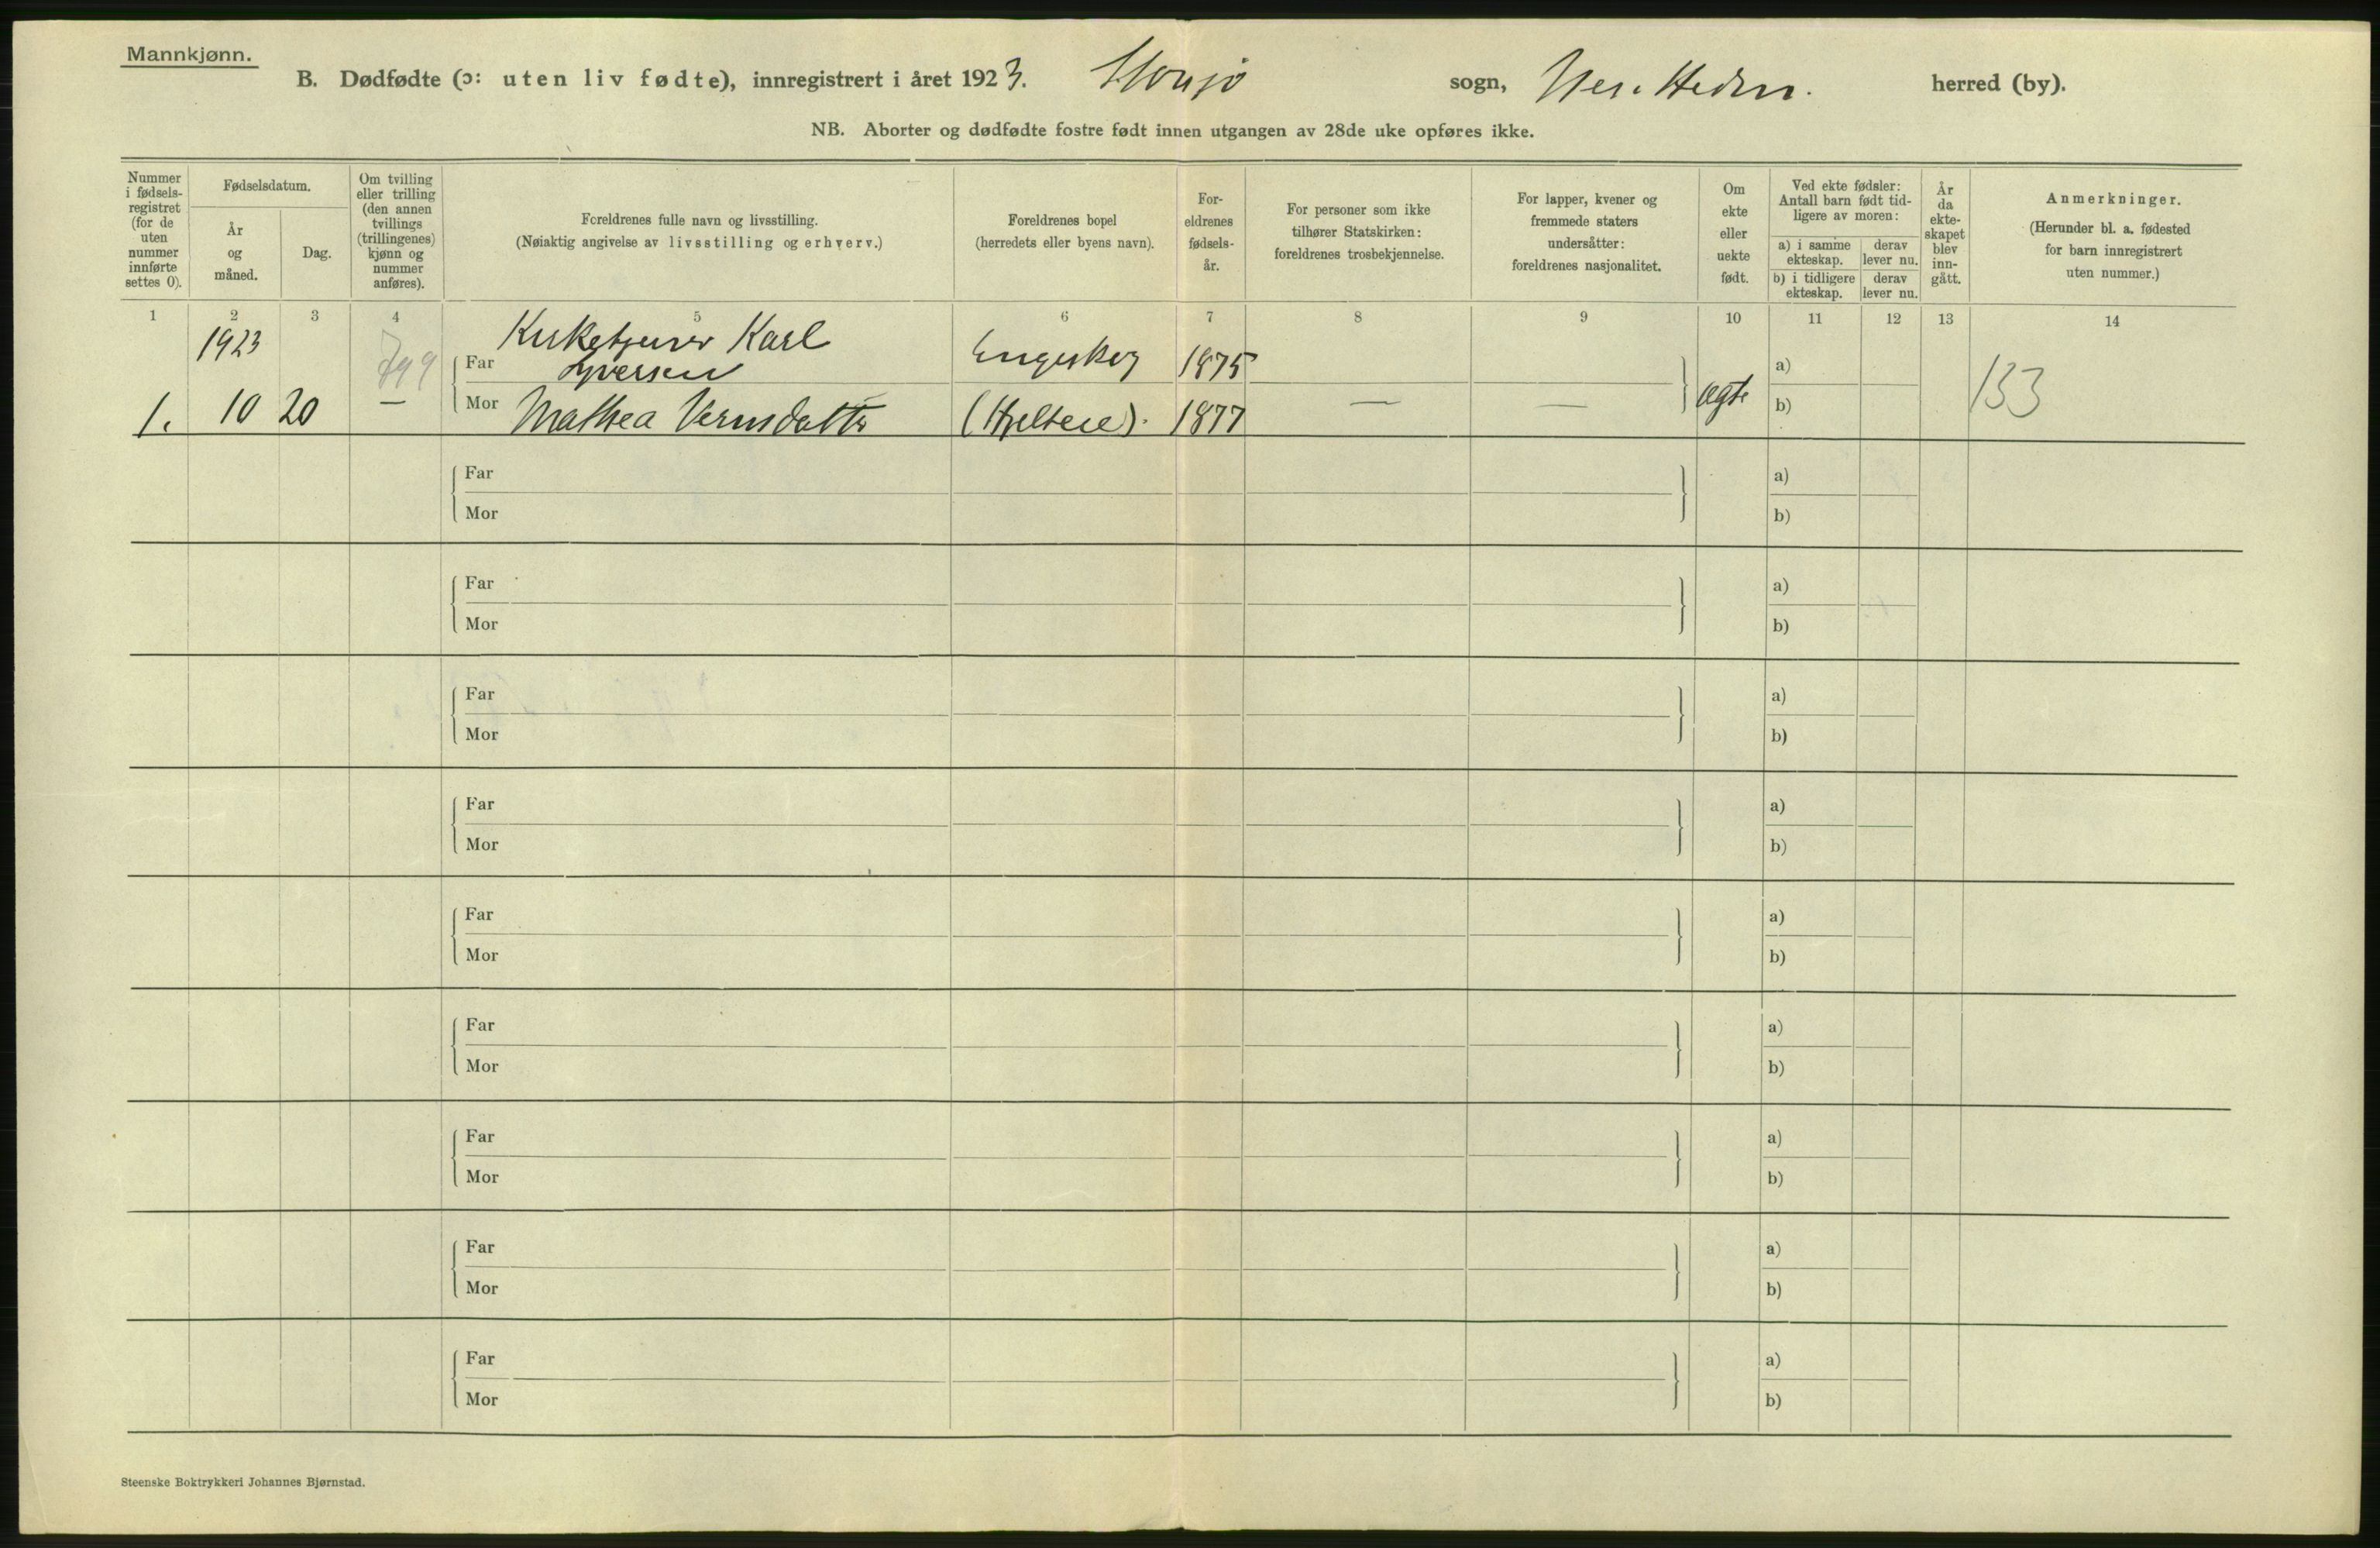 Mannkjønn.
B. Dødfødte (ɔ: uten liv fødte), innregistrert i året 1923. sogn, herred (by).
NB. Aborter og dødfødte fostre født innen utgangen av 28de uke opføres ikke.
Nummer
i fødsels-
registret
(for de
uten
nummer
innførte
settes 0).
Fødselsdatum.
År
og
måned.
Dag.
Om tvilling
eller trilling
(den annen
tvillings
(trillingenes)
kjønn og
nummer
anføres).
Foreldrenes fulle navn og livsstilling.
(Nøiaktig angivelse av livsstilling og erhverv.)
Foreldrenes bopel
(herredets eller byens navn).
For-
eldrenes
fødsels-
år.
For personer som ikke
tilhører Statskirken:
foreldrenes trosbekjennelse.
For lapper, kvener og
fremmede staters
undersåtter:
foreldrenes nasjonalitet.
Om
ekte
eller
uekte
født.
Ved ekte fødsler:
Antall barn født tid-
ligere av moren:
a) i samme
ekteskap.
derav
lever nu.
b) i tidligere
ekteskap.
derav
lever nu.
År
da
ekte-
skapet
blev
inn-
gått.
Anmerkninger.
(Herunder bl. a. fødested
for barn innregistrert
uten nummer.)
1 2 3 4 5 6 7 8 9 10 11 12 13 14
1923 Kirketjener Karl
Far Iversen Engeskog 1875 a)
1. 10 20 — Mor Mathea 1877 — — ægte b) 133
Far a)
Mor b)
Far a)
Mor b)
Far a)
Mor b)
Far a)
Mor b)
Far a)
Mor b)
Far a)
Mor b)
Far a)
Mor b)
Far a)
Mor b)
Far a)
Mor b)
Steenske Boktrykkeri Johannes Bjørnstad.